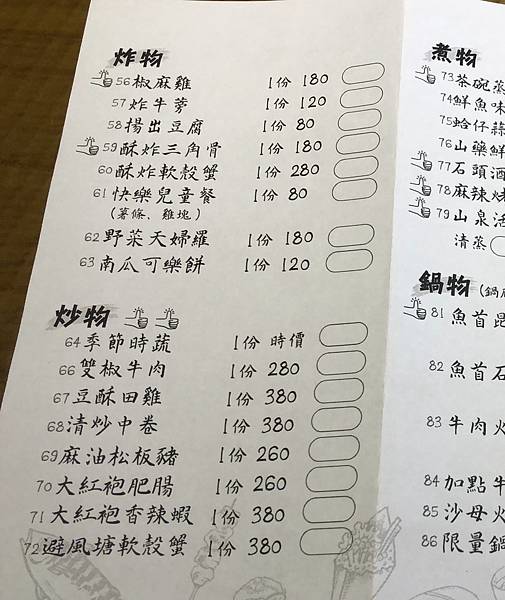 炸物
56椒麻雞 1份 180
57炸牛蒡 1份 120
58揚出豆腐 1份 80
59酥炸三角骨 1份 180
60酥炸軟殼蟹 1份 280
61快樂兒童餐 1份 80
(薯條、雞塊)
62野菜天婦羅 1份 180
63南瓜可樂餅 1份 120
炒物
64季節時蔬 1份 時價
66雙椒牛肉 1份 280
67豆酥田雞 1份 380
68清炒中卷 1份 380
69麻油松板豬 1份 260
70大紅袍肥腸 1份 260
71大紅袍香辣蝦 1份 380
72避風塘軟殼蟹 1份 380
煮物
73茶碗蒸
74鮮魚味
75蛤仔蒜
76山藥鮮
77石頭酒
78麻辣烤
79山泉活
清蒸
鍋物(鍋
81魚首昆
82魚首石
83牛肉火
84加點牛
85沙母火
86限量鍋